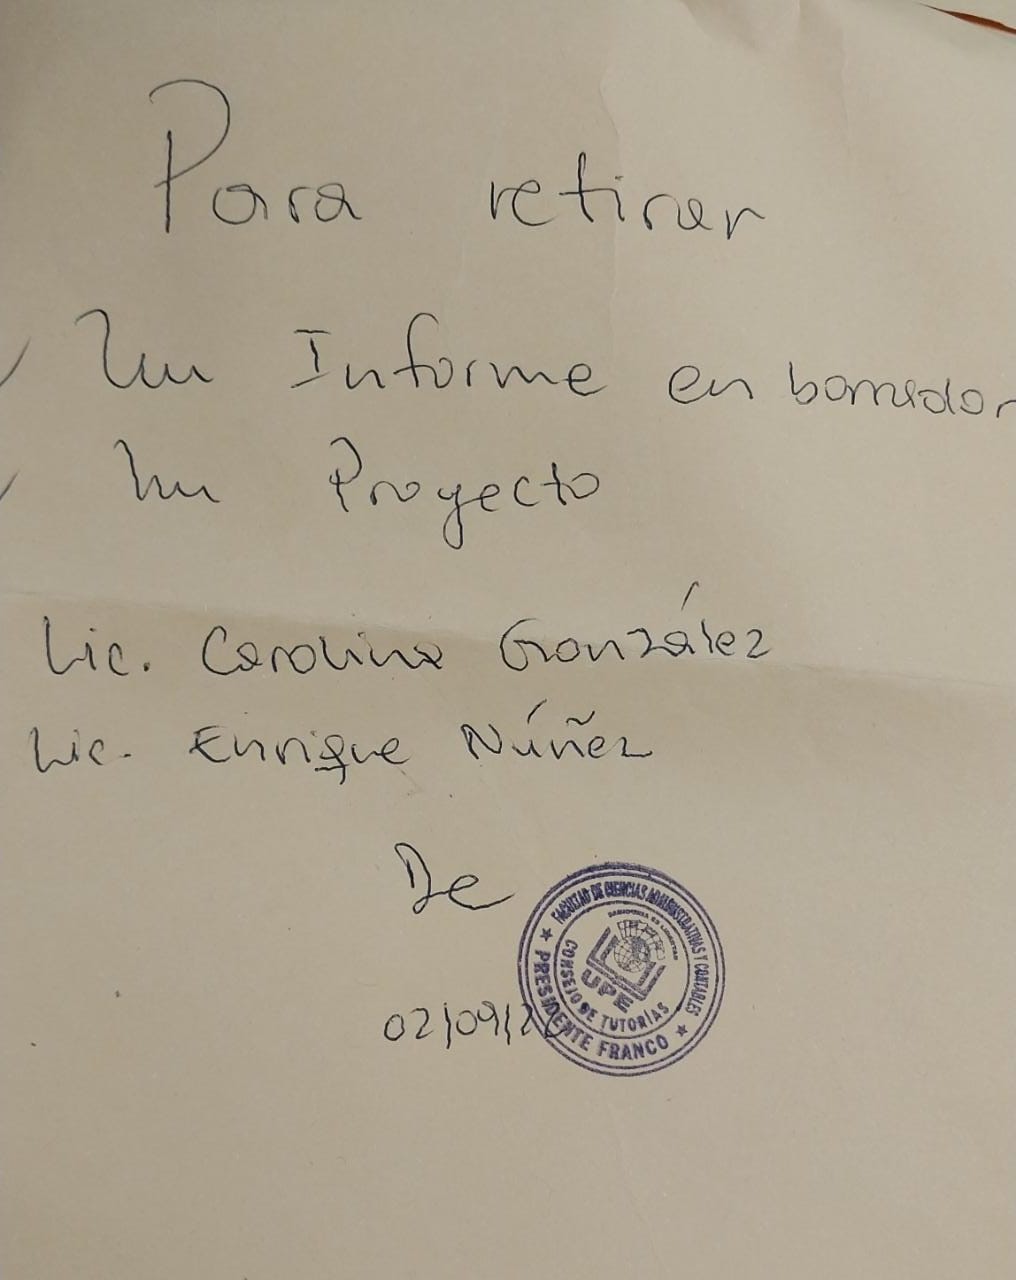 Para retirar
Un Informe en borrador
Un Proyecto
Lic. Carolina González
Lic. Enrique Núñez
De
02/09/20
FACULTAD DE CIENCIAS ADMINISTRATIVAS Y CONTABLES
PRESIDENTE FRANCO
CONSEJO DE TUTORÍAS
UPE